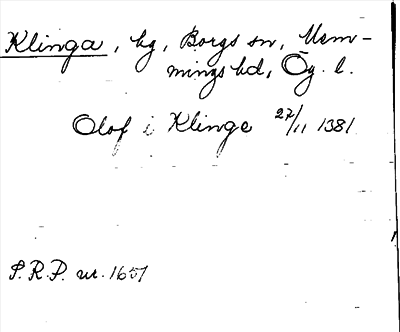 Klinga, by, Borgs sn, Mem-
mings hd, Ög. l.
Olof i Klinge 27/11 1381
S.R.P. nr. 1651